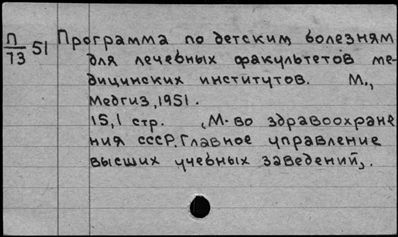 П/73 51 Программа по детским болезням
для лечебных факультетов ме-
дицинских институтов. М.,
Медгиз, 1951.
15,1 стр. (М-во здравоохране
ния СССР. Главное управление
высших учебных заведений).